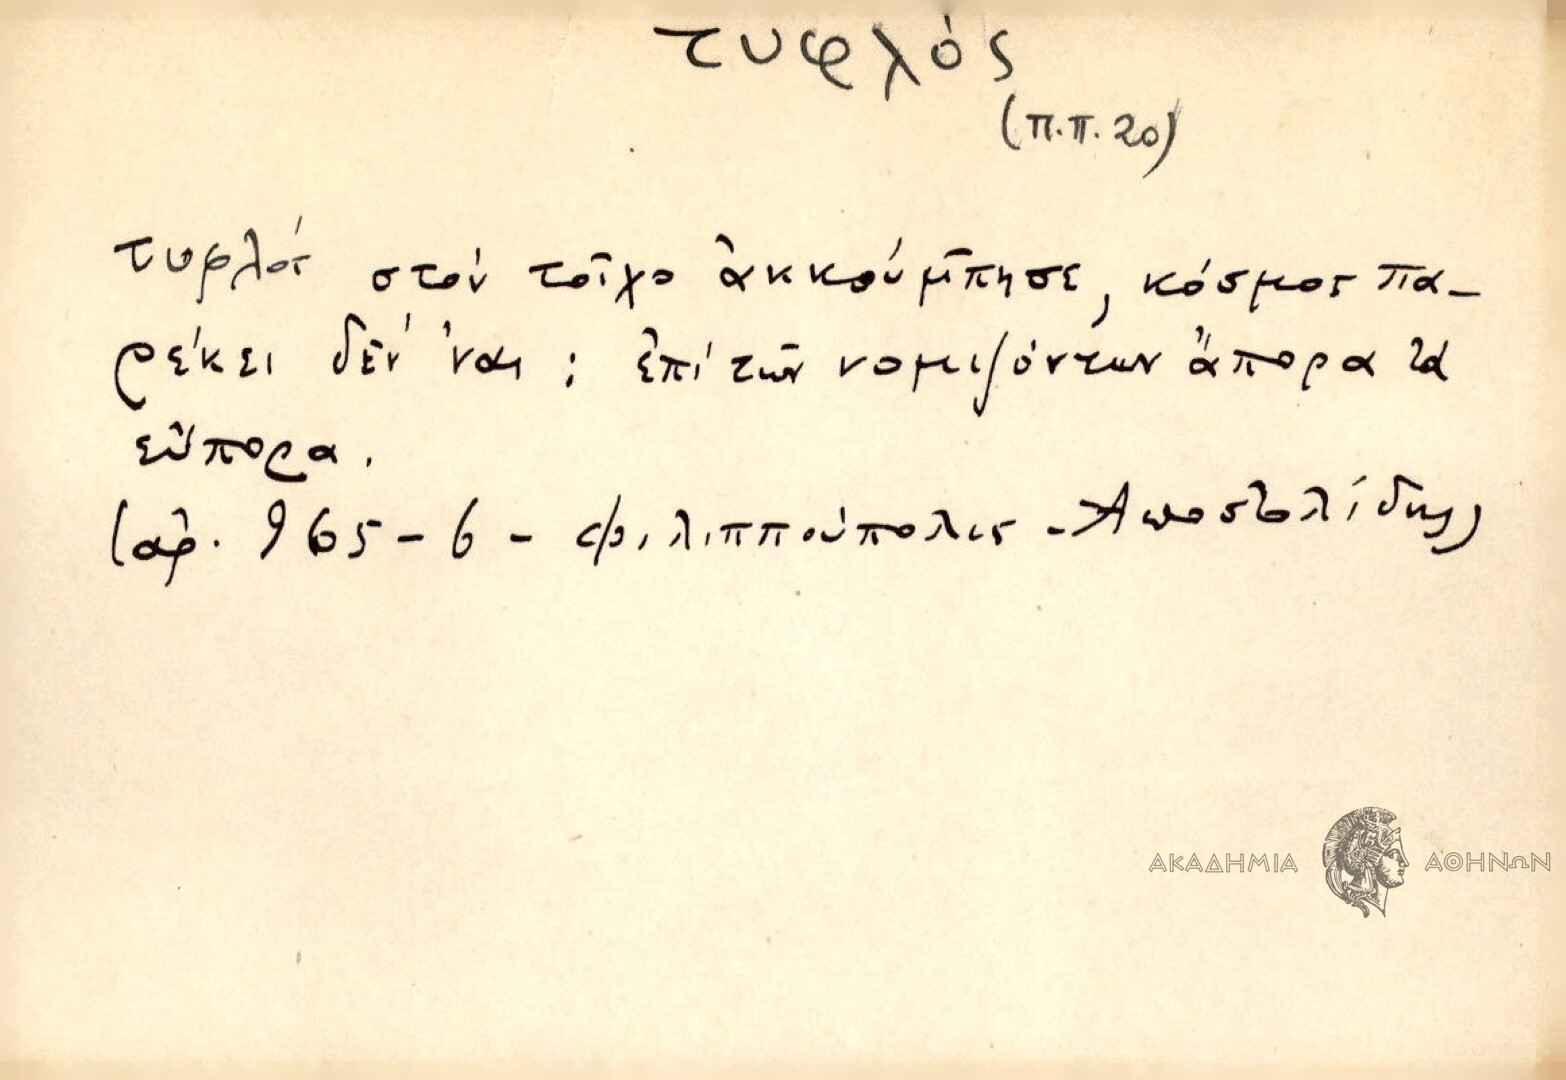 τυφλός
(π.π. 20)
τυφλός στόν τοῖχο ἀκκούμπησε, κόσμος πα-
ρέκει δέν ἔναι ; ἐπί τῶν νομιζόντων ἄπορα τά
εὔπορα.
(ἀρ. 965-6 - Φιλιππούπολις - Ἀποστολίδης)
ΑΚΑΔΗΜΙΑ ΑΘΗΝΩΝ